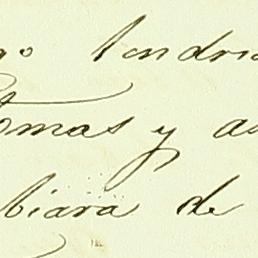 go tendria
Tomas y a
biara de